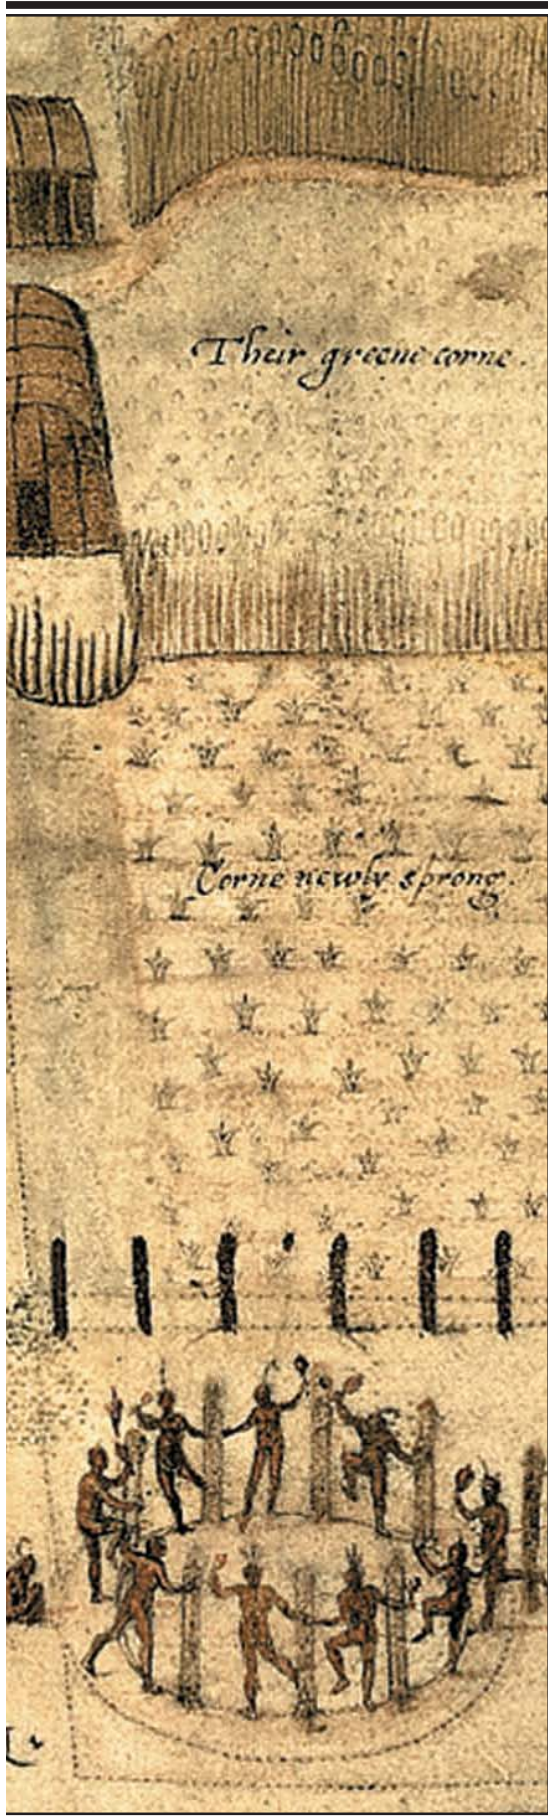 Their greene corne.
Corne newly sprong.